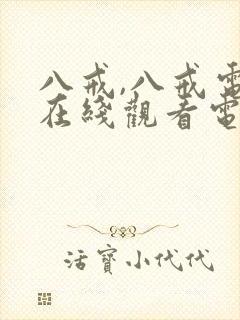 八戒,八戒電
在綫觀看電
活寶小代代